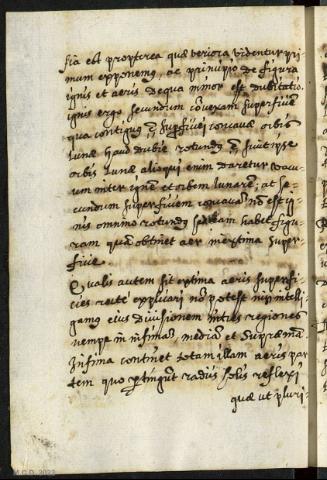 sia est propterea quæ veriora videntur pri
mum exponemus, ac principio de figura
ignis et aeris de qua minor est dubitatio.
ignis ergo secundum convexam superficiem
qua contiguus est superficiei concavæ orbis
Lunæ haud dubie rotundus est sicut ipse
orbis Lunæ alioqui enim daretur vacu
um inter ignem et orbem lunarem; at se
cundum superficiem concavam non est ig
nis omnino rotundus sed eam habet figu
ram quam obtinet aer in extima super
ficie.
Qualis autem sit extima aeris superfi
cies recte explicari non potest nisi intelli
gamus eius divisionem in tres regiones
nempe in infimam mediam et supremam.
Infima continet totam illam aeris par
tem quo pertingunt radii solis reflexi
quæ ut pluri-